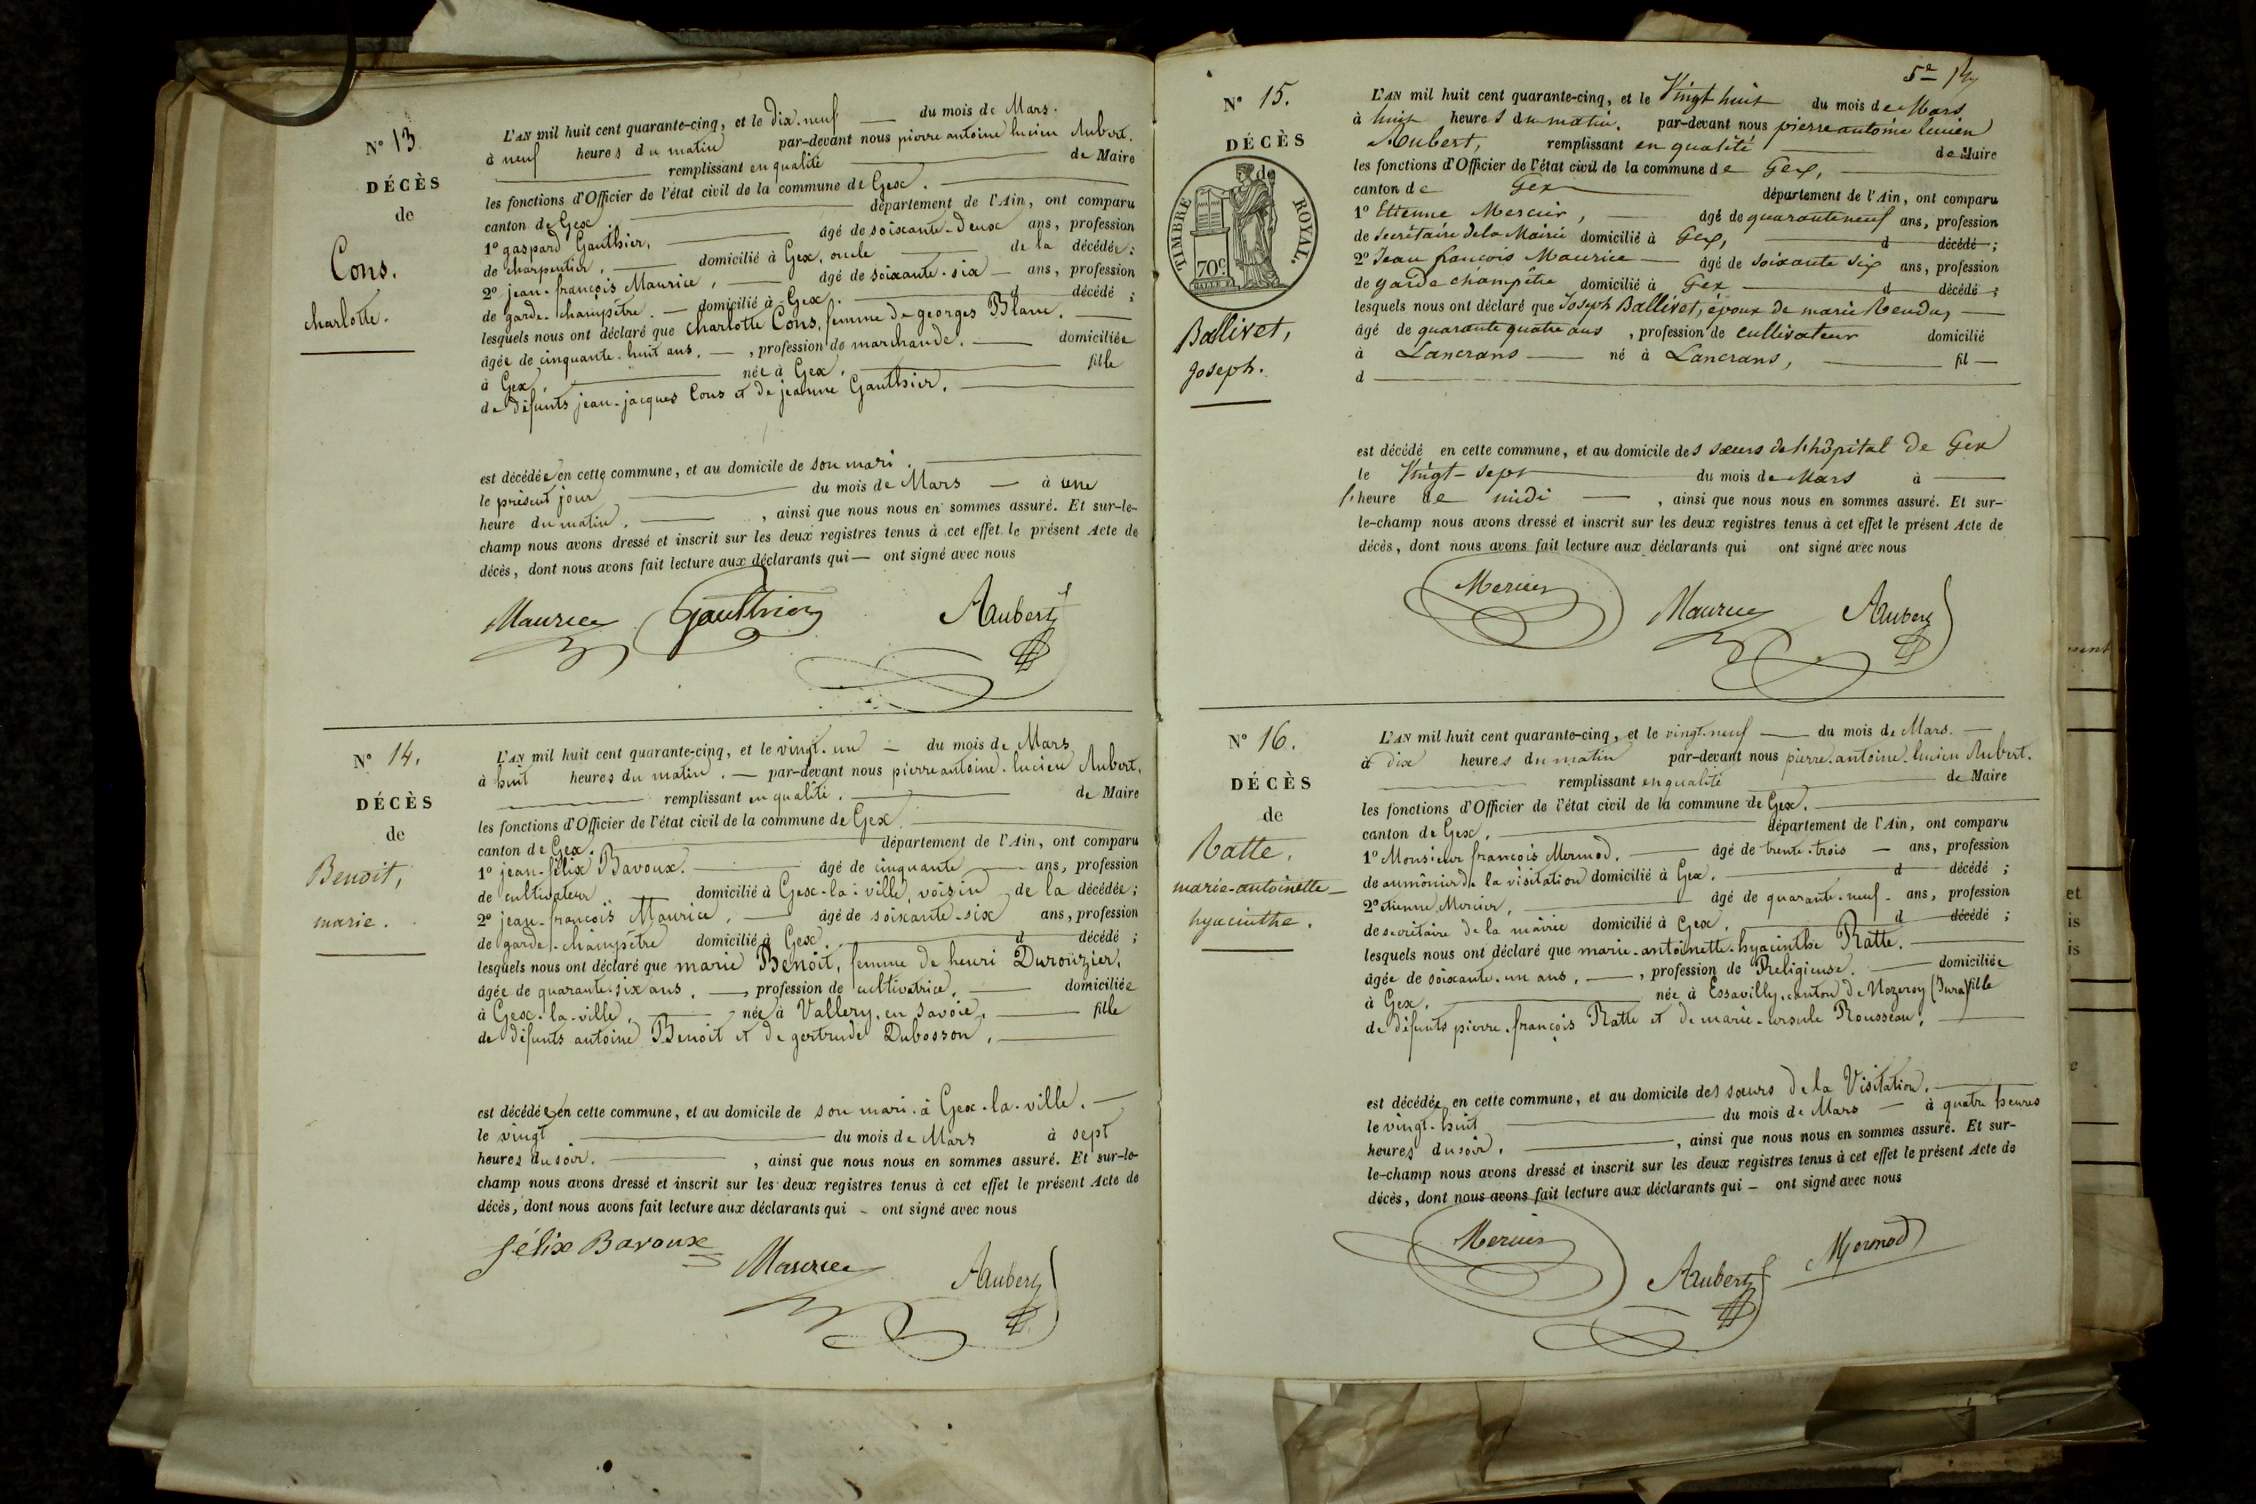 N° 13.
DÉCÈS
de
Cons.
charlotte.
L'AN mil huit cent quarante-cinq, et le dix-neuf du mois de Mars.
à neuf heures du matin par-devant nous pierre antoine lucien Aubert.
remplissant en qualité de Maire
les fonctions d'Officier de l'état civil de la commune de Gex.
canton de Gex département de l'Ain, ont comparu
1° gaspard Gauthier, âgé de soixante-deux ans, profession
de charpentier, domicilié à Gex, oncle de la décédée;
2° jean-françois Maurice, âgé de soixante-six ans, profession
de garde-champêtre. domicilié à Gex. d décédé;
lesquels nous ont déclaré que charlotte Cons, femme de georges Blanc.
âgée de cinquante-huit ans. , profession de marchande. domiciliée
à Gex, née à Gex. fille
de défunts jean-jacques Cons et de jeanne Gauthier.
est décédée en cette commune, et au domicile de son mari.
le présent jour du mois de Mars à une
heure du matin. , ainsi que nous nous en sommes assuré. Et sur-le-
champ nous avons dressé et inscrit sur les deux registres tenus à cet effet le présent Acte de
décès, dont nous avons fait lecture aux déclarants qui ont signé avec nous
Maurice Gauthier Aubert
N° 14.
DÉCÈS
de
Benoit,
marie.
L'AN mil huit cent quarante-cinq, et le vingt-un du mois de Mars
à huit heures du matin. par-devant nous pierre antoine-lucien Aubert.
remplissant en qualité. de Maire
les fonctions d'Officier de l'état civil de la commune de Gex
canton de Gex. département de l'Ain, ont comparu
1° jean-félix Bavoux. âgé de cinquante ans, profession
de cultivateur domicilié à Gex-la-ville, voisin de la décédée;
2° jean-françois Maurice, âgé de soixante-six ans, profession
de garde-champêtre domicilié à Gex. d décédé;
lesquels nous ont déclaré que marie Benoit, femme de henri Durouzier,
âgée de quarante-six ans. , profession de cultivatrice, domiciliée
à Gex-la-ville, née à Vallery, en Savoie, fille
de défunts antoine Benoit et de gertrude Dubosson,
est décédée en cette commune, et au domicile de son mari à Gex-la-ville.
le vingt du mois de Mars à sept
heures du soir. , ainsi que nous nous en sommes assuré. Et sur-le-
champ nous avons dressé et inscrit sur les deux registres tenus à cet effet le présent Acte de
décès, dont nous avons fait lecture aux déclarants qui - ont signé avec nous
félix Bavoux Maurice Aubert
5e
N° 15.
DÉCÈS
de
TIMBRE ROYAL.
70c
Ballivet,
joseph.
L'AN mil huit cent quarante-cinq, et le Vingt huit du mois de Mars
à huit heures du matin. par-devant nous pierre antoine lucien
Aubert, remplissant en qualité de Maire
les fonctions d'Officier de l'état civil de la commune de Gex,
canton de Gex département de l'Ain, ont comparu
1° Etienne Mercier, âgé de quarante neuf ans, profession
de Secrétaire de la Mairie domicilié à Gex, d décédé;
2° Jean françois Maurice âgé de soixante six ans, profession
de garde champêtre domicilié à Gex d décédé;
lesquels nous ont déclaré que Joseph Ballivet, époux de marie Rendu,
âgé de quarante quatre ans , profession de cultivateur domicilié
à Lancrans né à Lancrans, fil
d
est décédé en cette commune, et au domicile des sœurs de l'hôpital de Gex
le Vingt-sept du mois de Mars à
l'heure de midi , ainsi que nous nous en sommes assuré. Et sur-
le-champ nous avons dressé et inscrit sur les deux registres tenus à cet effet le présent Acte de
décès, dont nous avons fait lecture aux déclarants qui ont signé avec nous
Mercier Maurice Aubert
N° 16.
DÉCÈS
de
Ratte.
marie-antoinette-
hyacinthe.
L'AN mil huit cent quarante-cinq, et le vingt-neuf du mois de Mars.
à dix heures du matin par-devant nous pierre-antoine-lucien Aubert.
remplissant en qualité de Maire
les fonctions d'Officier de l'état civil de la commune de Gex.
canton de Gex. département de l'Ain, ont comparu
1° Monsieur françois Mermod. âgé de trente-trois ans, profession
de aumônier de la visitation domicilié à Gex. d décédé;
2° etienne Mercier, âgé de quarante-neuf- ans, profession
de secrétaire de la mairie domicilié à Gex, d décédé;
lesquels nous ont déclaré que marie-antoinette-hyacinthe Ratte.
âgée de soixante-un ans. , profession de Religieuse. domiciliée
à Gex. née à Essavilly, canton de Nozeroy (Jura) fille
de défunts pierre-françois Ratte et de marie-ursule Rousseau,
est décédée en cette commune, et au domicile des sœurs de la Visitation.
le vingt-huit du mois de Mars à quatre heures
heures du soir. , ainsi que nous nous en sommes assuré. Et sur-
le-champ nous avons dressé et inscrit sur les deux registres tenus à cet effet le présent Acte de
décès, dont nous avons fait lecture aux déclarants qui - ont signé avec nous
Mercier Aubert Mermod